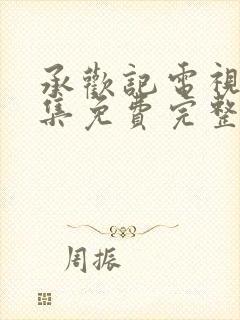 承歡記電視
集免費完整
周振